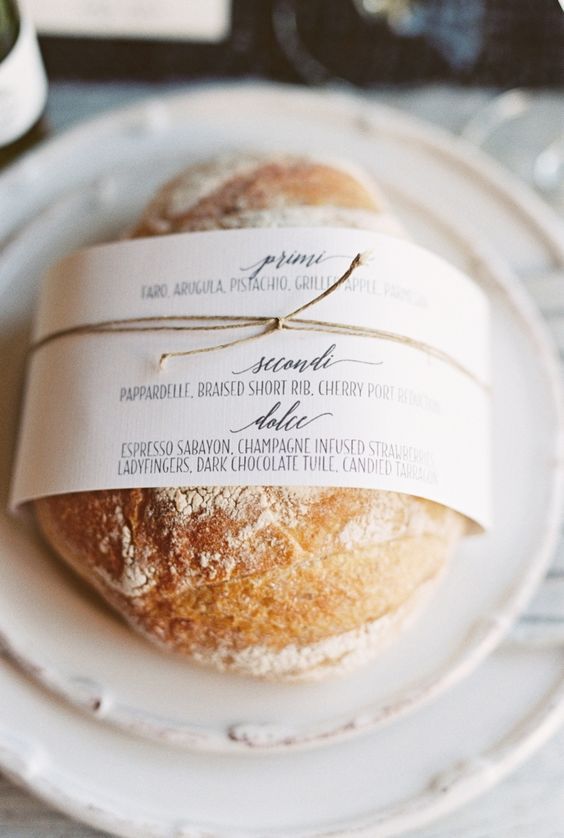 primi
FARO, ARUGULA, PISTACHIO, GRILLED APPLE, PARMESAN
secondi
PAPPARDELLE, BRAISED SHORT RIB, CHERRY PORT REDUCTION
dolce
ESPRESSO SABAYON, CHAMPAGNE INFUSED STRAWBERRIES,
LADYFINGERS, DARK CHOCOLATE TUILE, CANDIED TARRAGON